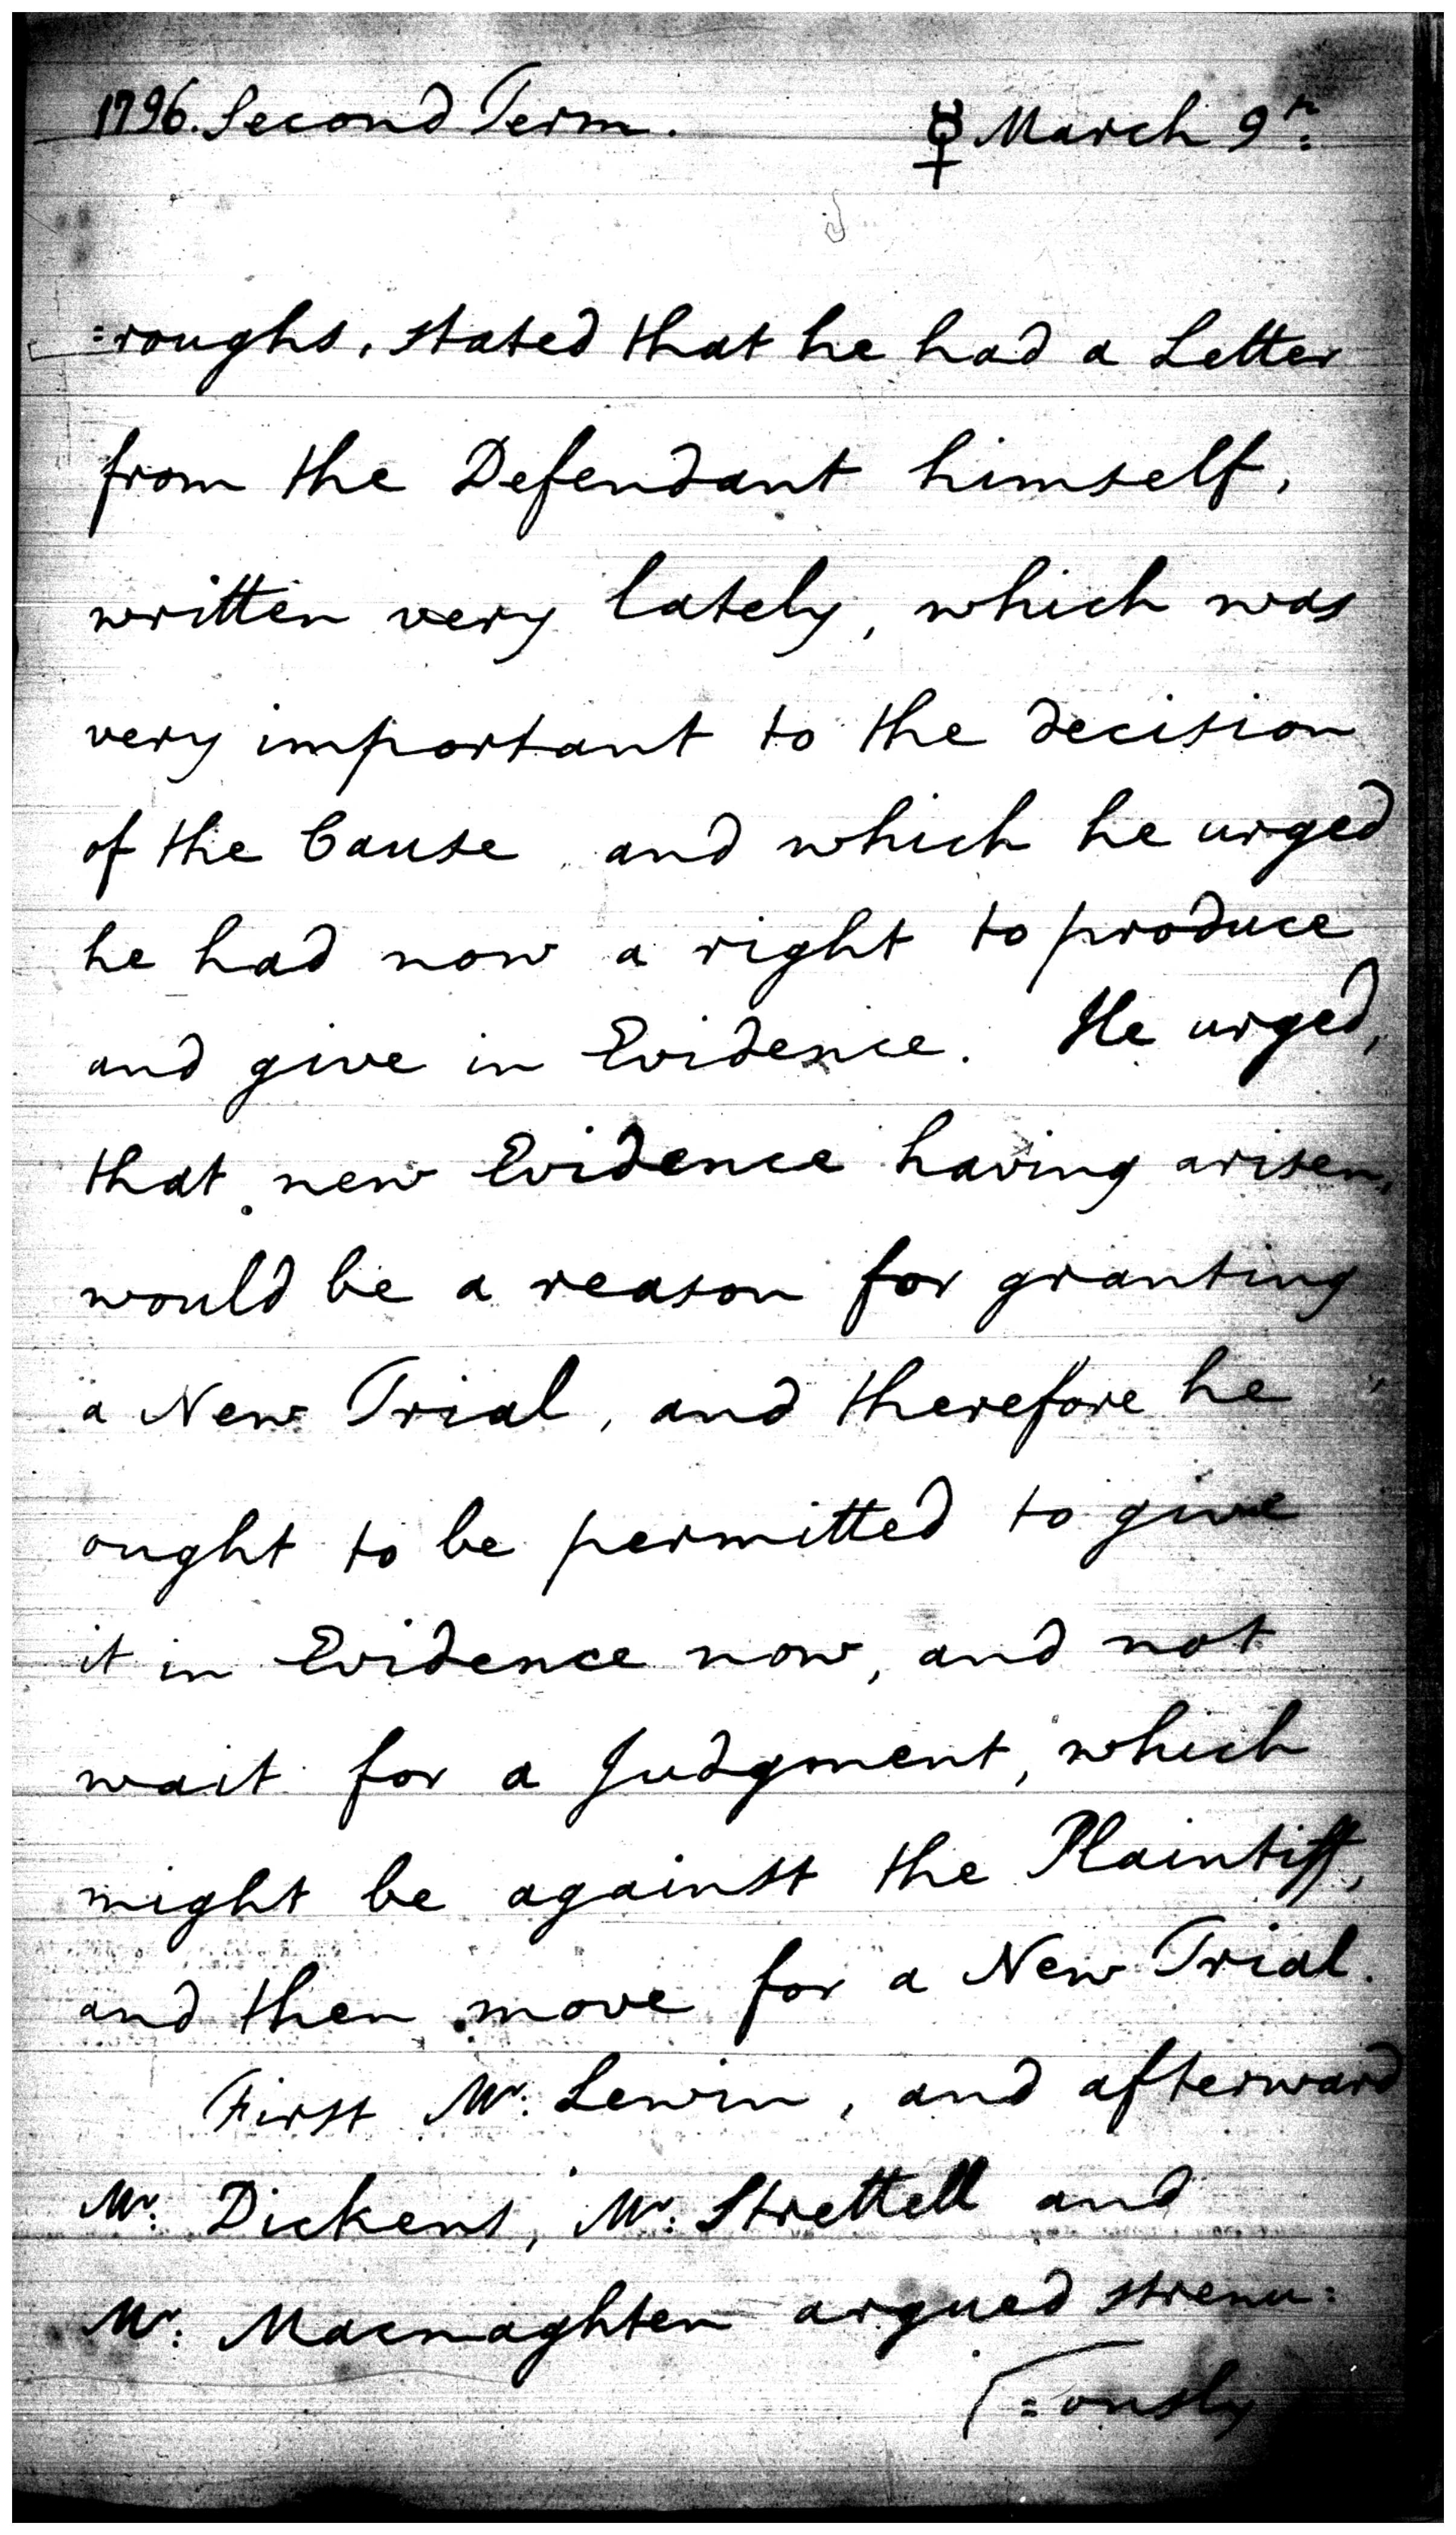 1796. Second Term. ☿ March 9th:
=roughs, stated that he had a Letter
from the Defendant himself,
written very lately, which was
very important to the decision
of the Cause and which he urged
he had now a right to produce
and give in Evidence. He urged,
that new Evidence having arisen,
would be a reason for granting
a New Trial, and therefore he
ought to be permitted to give
it in Evidence now, and not
wait for a Judgment, which
might be against the Plaintiff,
and then move for a New Trial.
First Mr: Lewin, and afterward
Mr: Dickens, Mr: Strettell and
Mr: Macnaghten argued strenu=
=ously